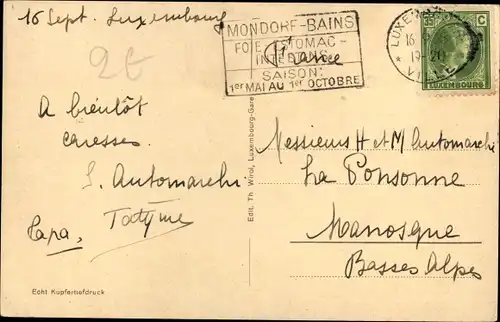 16 Sept. Luxembourg
MONDORF-BAINS
FOIE-ESTOMAC-
INTESTINS
France
SAISON:
1er MAI AU 1er OCTOBRE
LUXEMBOURG
16
19-20
VILLE
35 C
LUXEMBOURG
2€
A bientôt
caresses
S. Automarchi
Tatyme
Papa,
Messieurs H et M Automarchi
La Ponsonne
Manosque
Basses Alpes
Edit. Th. Wirol, Luxembourg-Gare
Echt Kupfertiefdruck